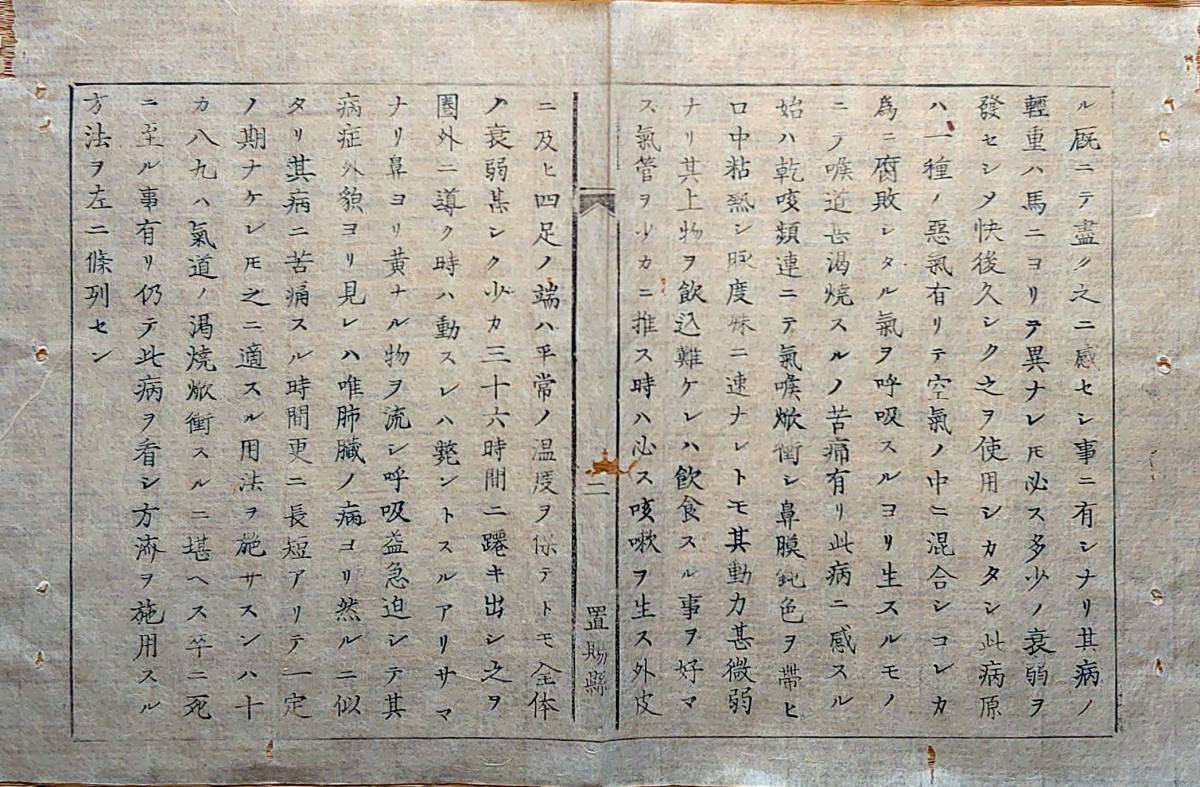 ル厩ニテ盡ク之ニ感セシ事ニ有シナリ其病ノ
輕重ハ馬ニヨリテ異ナレ𪜈必ス多少ノ衰弱ヲ
發セシメ快後久シク之ヲ使用シカタシ此病原
ハ一種ノ惡氣有リテ空氣ノ中ニ混合シコレカ
為ニ腐敗シタル氣ヲ呼吸スルヨリ生スルモノ
ニテ喉道甚渇焼スルノ苦痛有リ此病ニ感スル
始ハ乾咳類連ニテ氣喉焮衝シ鼻膜鈍色ヲ帶ヒ
口中粘熱シ脉度殊ニ速ナレトモ其動力甚微弱
ナリ其上物ヲ飲込難ケレハ飲食スル事ヲ好マ
ス氣管ヲ少カニ推ス時ハ必ス咳嗽ヲ生ス外皮
二
置賜縣
ニ及ヒ四足ノ端ハ平常ノ温度ヲ保テトモ全体
ノ衰弱甚シク少カ三十六時間ニ踡キ出シ之ヲ
圏外ニ導ク時ハ動スレハ斃ントスルアリサマ
ナリ鼻ヨリ黄ナル物ヲ流シ呼吸益急迫シテ其
病症外貌ヨリ見レハ唯肺臓ノ病コリ然ルニ似
タリ其病ニ苦痛スル時間更ニ長短アリテ一定
ノ期ナケレ𪜈之ニ適スル用法ヲ施サスンハ十
カ八九ハ氣道ノ渇焼焮衝スルニ堪ヘス卒ニ死
ニ至ル事有リ仍テ此病ヲ看シ方濟ヲ施用スル
方法ヲ左ニ條列セン